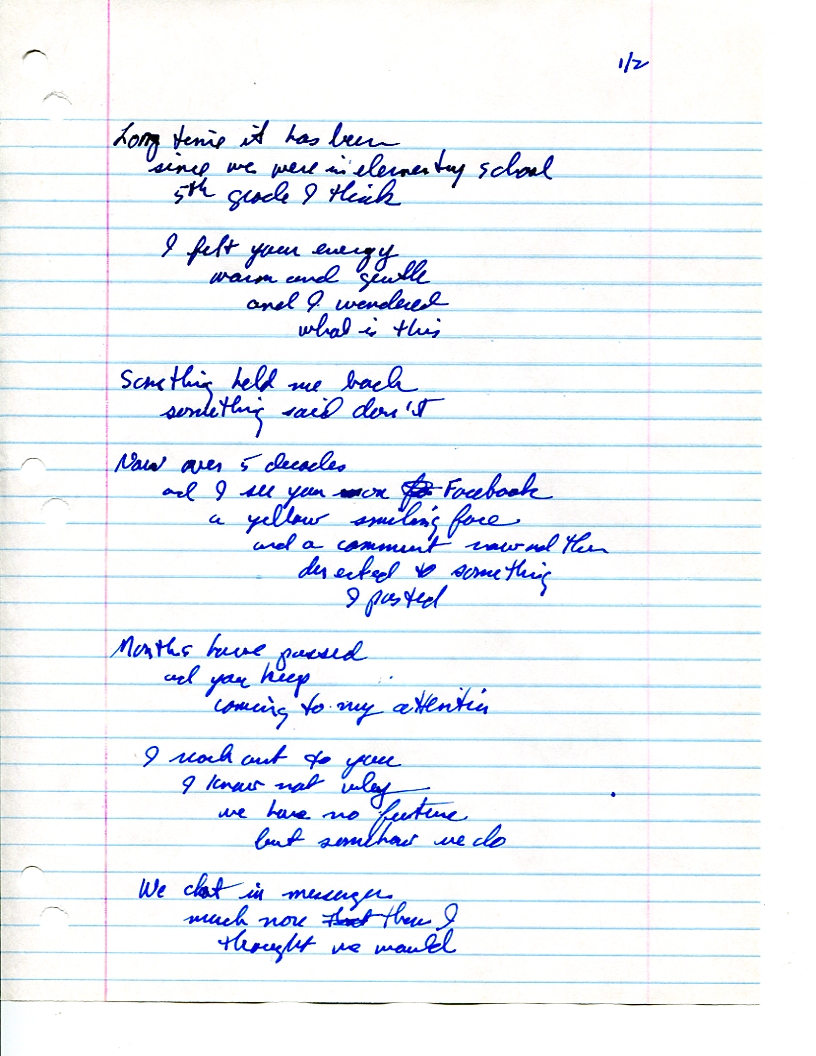 1/2
Long time it has been
since we were in elementry school
5th grade I think
I felt your energy
warm and gentle
and I wondered
what is this
Something held me back
something said don't
Now over 5 decades
and I see you on Facebook
a yellow smiling face
and a comment now and then
directed to something
I posted
Months have passed
and you keep
coming to my attention
I reach out to you
I know not why
we have no future
but somehow we do
We chat in messenger
much more than I
thought we would